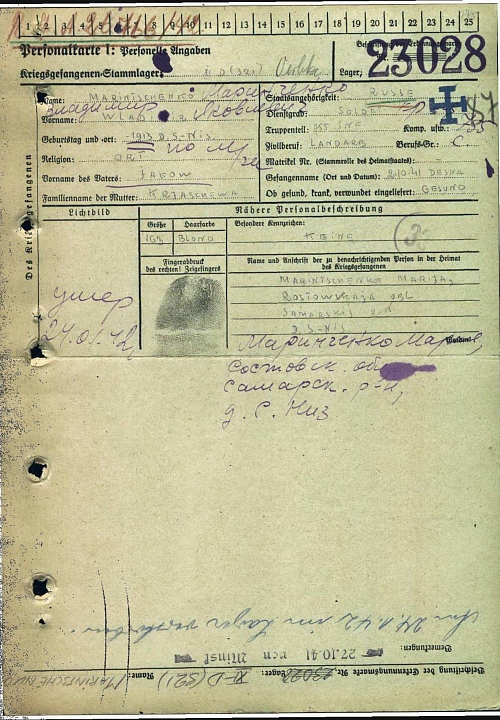 1 2 3 4 5 6 7 8 9 10 11 12 13 14 15 16 17 18 19 20 21 22 23 24 25
Personalkarte I: Personelle Angaben
Kriegsgefangenen-Stammlager: XI D (321)
Lager:
23028
Des Kriegsgefangenen
Name: MARINTSCHENKO Маринченко
Staatsangehörigkeit: RUSSE
Владимир Яковлевич
Vorname: WLADIMIR
Dienstgrad: SOLDAT
Truppenteil: 755 INF Komp. usw.:
Geburtstag und -ort: 1913 D.S-NIS
Zivilberuf: LANDARB Berufs-Gr.: C.
Religion: ORT
Matrikel Nr. (Stammrolle des Heimatstaates):
Vorname des Vaters: JAKOW
Gefangennahme (Ort und Datum): 2.10.41 DESNA
Familienname der Mutter: KRJASCHEWA
Ob gesund, krank, verwundet eingeliefert: GESUND
Lichtbild
Nähere Personalbeschreibung
Größe Haarfarbe Besondere Kennzeichen:
163 BLOND KEINE
Fingerabdruck
des rechten! Zeigefingers
Name und Anschrift der zu benachrichtigenden Person in der Heimat
des Kriegsgefangenen
MARINTSCHENKO MARIJA,
ROSTOWSKAJA OBL
SAMARSKIJ R-N
D.S-NIS
умер
24.01.42
Маринченко Мария,
Ростовск. обл
Самарск. р-н,
д. С. Низ
Am 24.1.42 im Lager verstorben.
Bemerkungen:
27.10.41 von Minsk
Beschriftung der Erkennungsmarke Nr. 23028 Lager: XI-D (321) Name: MARINTSCHENKO